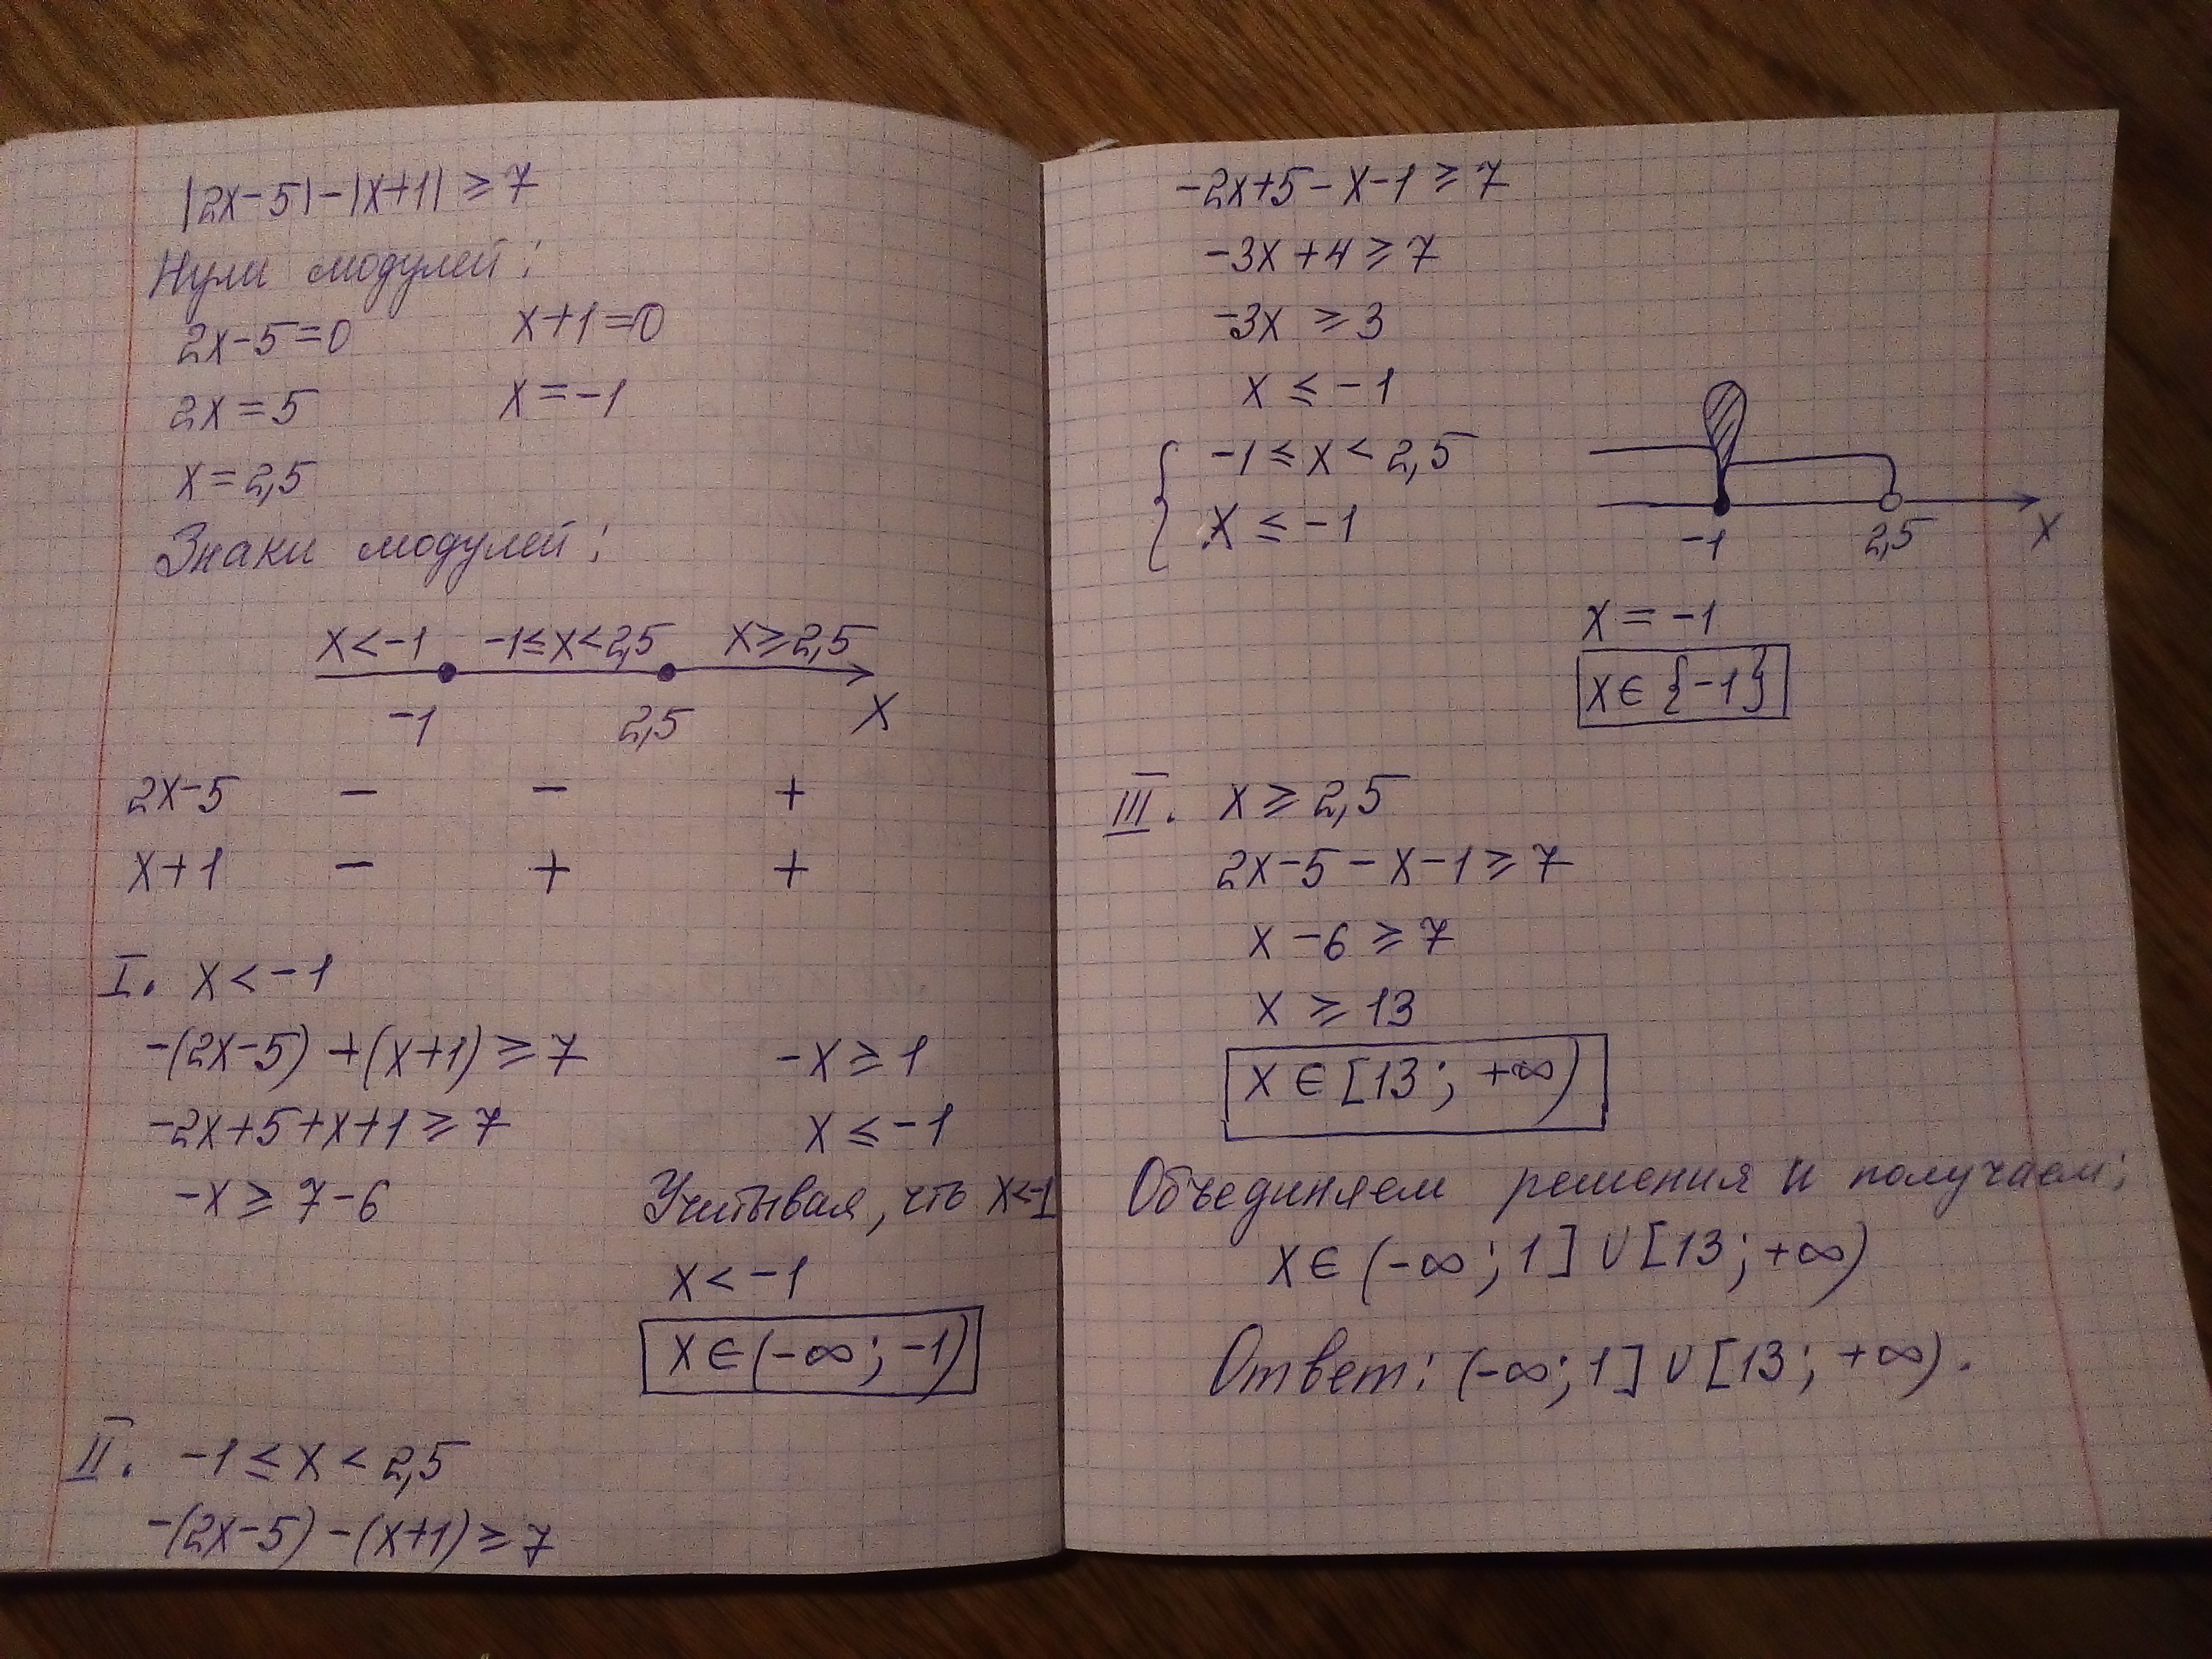 |2x-5|-|x+1| ≥ 7
Нули модулей:
2x-5=0 x+1=0
2x=5 x=-1
x=2,5
Знаки модулей:
x<-1 -1≤x<2,5 x≥2,5
-1 2,5 x
2x-5 - - +
x+1 - + +
I. x<-1
-(2x-5)+(x+1)≥7
-2x+5+x+1≥7
-x≥7-6
-x≥1
x≤-1
Учитывая, что x<-1
x<-1
x∈(-∞;-1)
II. -1≤x<2,5
-(2x-5)-(x+1)≥7
-2x+5-x-1≥7
-3x+4≥7
-3x≥3
x≤-1
-1≤x<2,5
x≤-1
-1 2,5 x
x=-1
x∈{-1}
III. x≥2,5
2x-5-x-1≥7
x-6≥7
x≥13
x∈[13;+∞)
Объединяем решения и получаем:
x∈(-∞;1]∪[13;+∞)
Ответ: (-∞;1]∪[13;+∞).